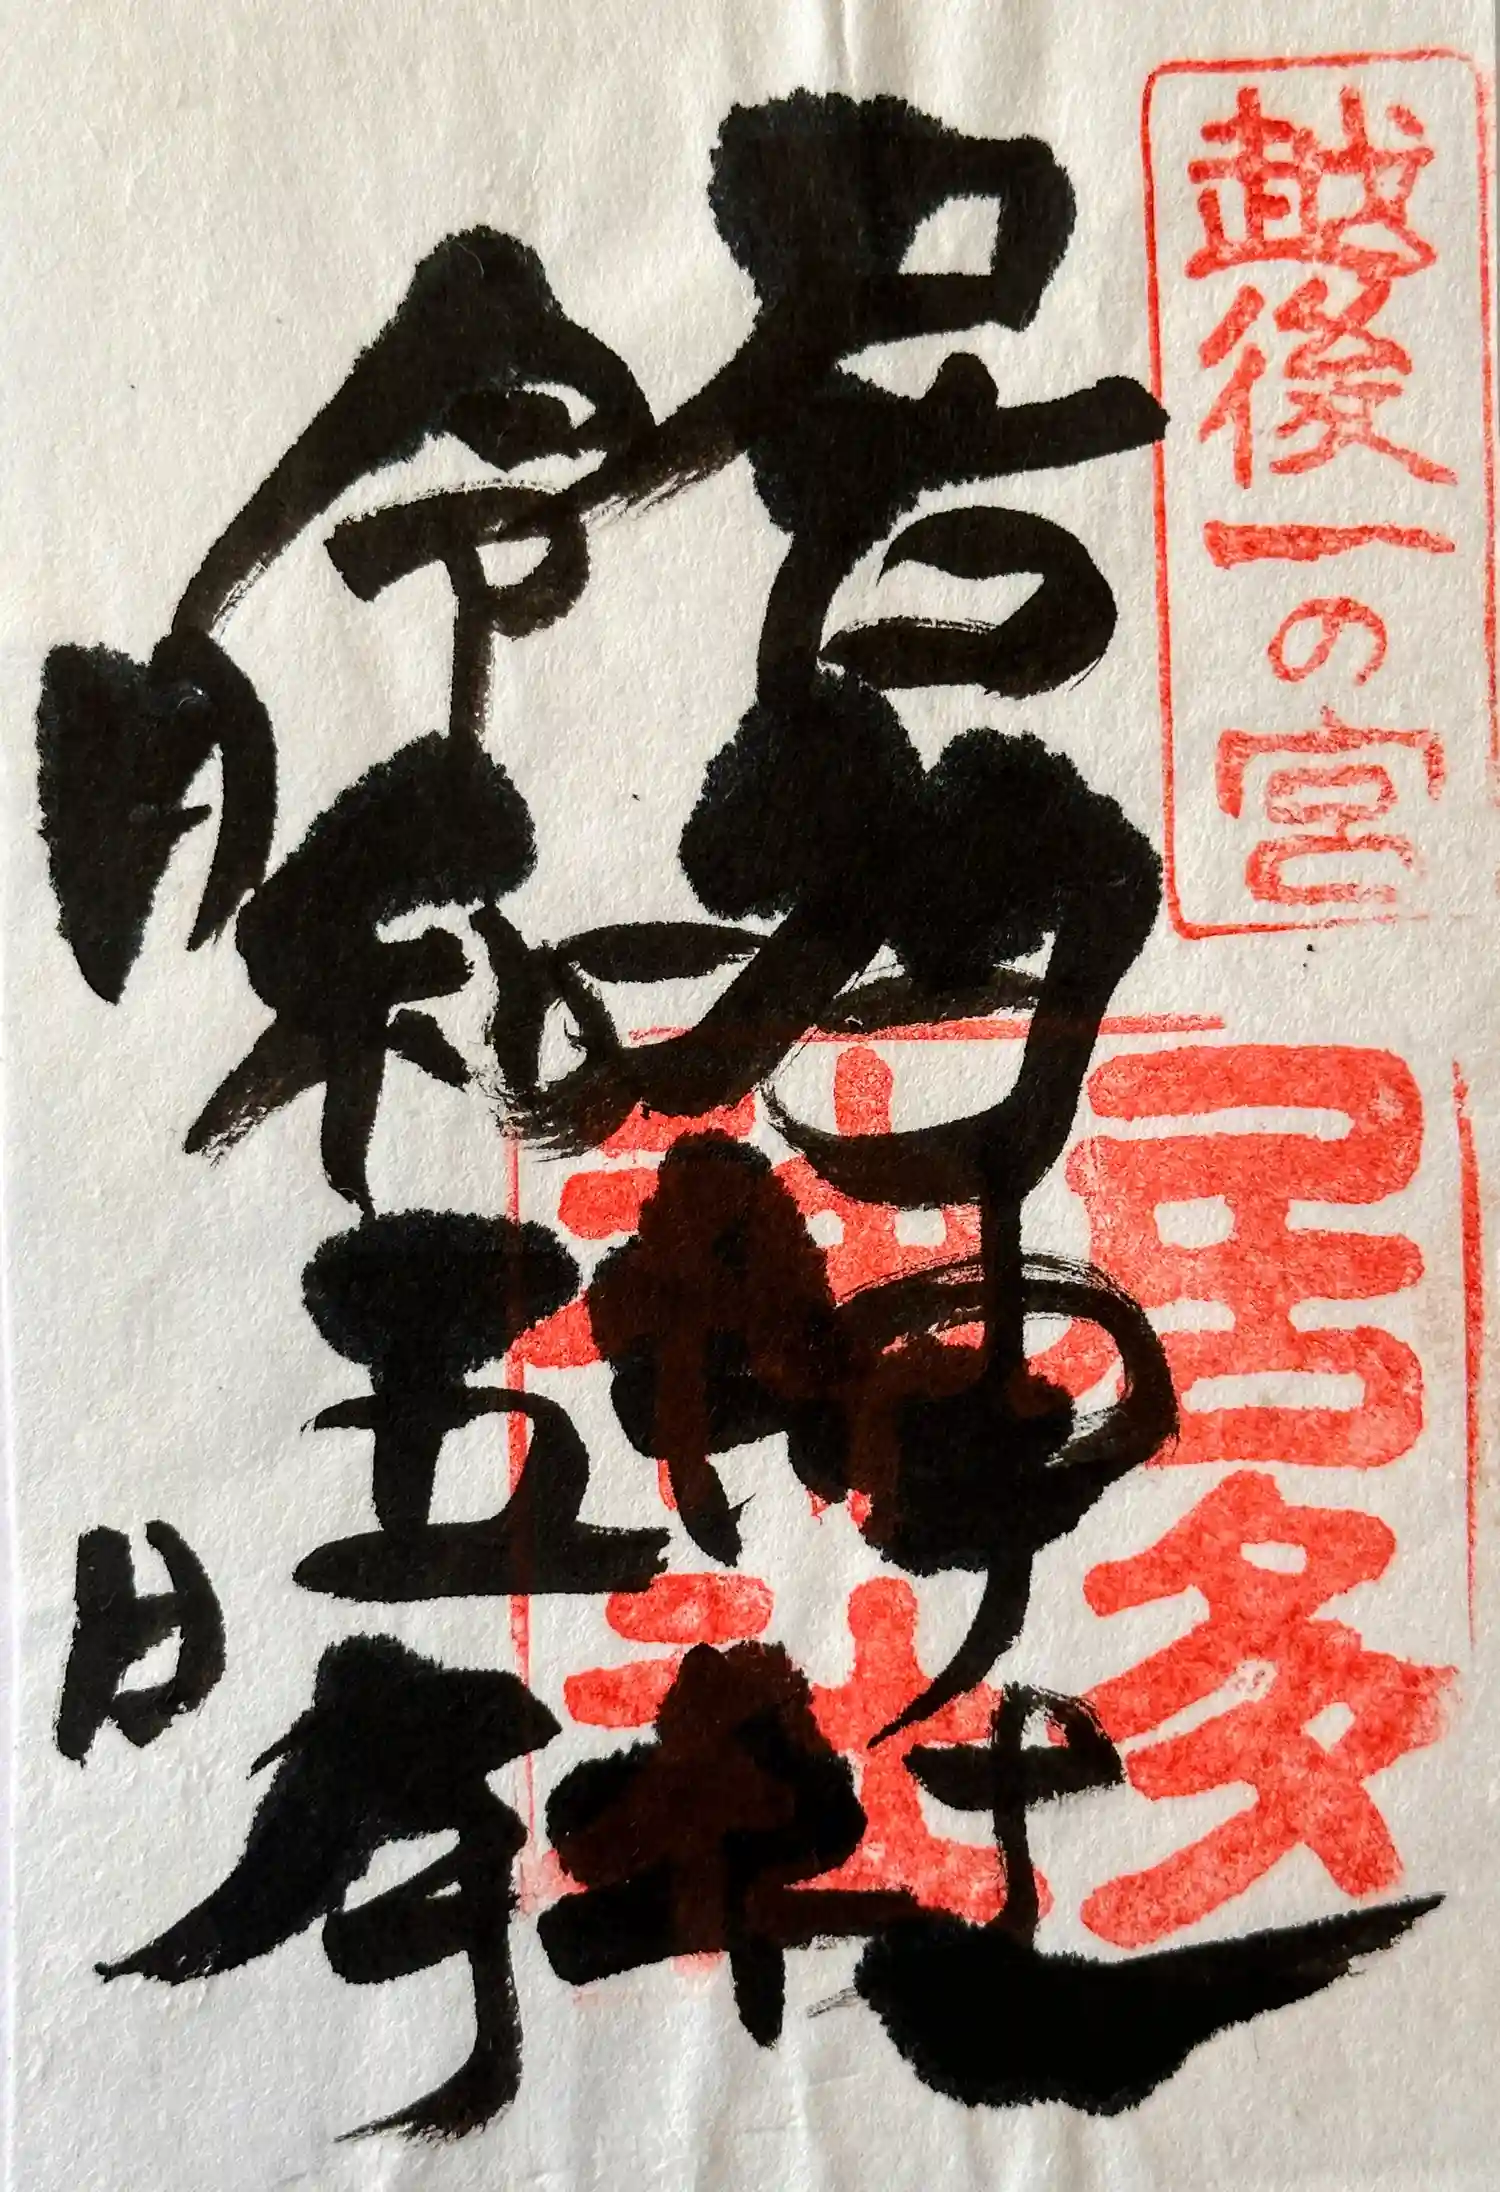 越後一の宮
居多
神社
居多神社
令和五年
月
日